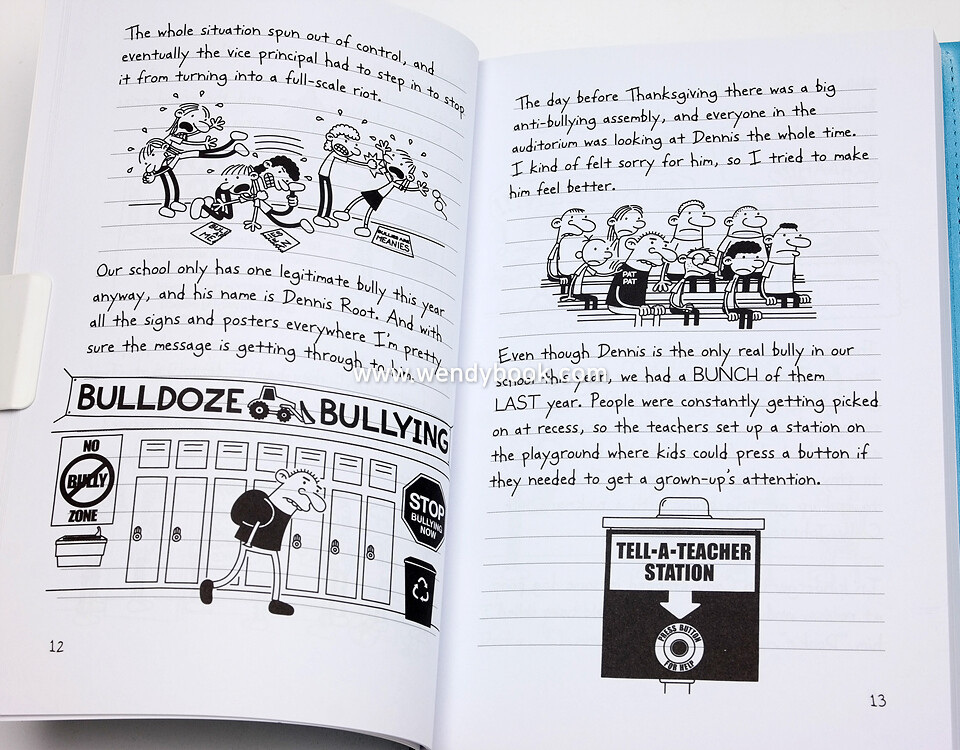 The whole situation spun out of control, and
eventually the vice principal had to step in to stop
it from turning into a full-scale riot.
BULLIES ARE
MEANIES
Our school only has one legitimate bully this year
anyway, and his name is Dennis Root. And with
all the signs and posters everywhere I'm pretty
sure the message is getting through to him.
BULLDOZE BULLYING
NO
BULLY
ZONE
STOP
BULLYING
NOW
12
The day before Thanksgiving there was a big
anti-bullying assembly, and everyone in the
auditorium was looking at Dennis the whole time.
I kind of felt sorry for him, so I tried to make
him feel better.
PAT
PAT
Even though Dennis is the only real bully in our
school this year, we had a BUNCH of them
LAST year. People were constantly getting picked
on at recess, so the teachers set up a station on
the playground where kids could press a button if
they needed to get a grown-up's attention.
TELL-A-TEACHER
STATION
PRESS BUTTON
FOR HELP
13
www.wendybook.com